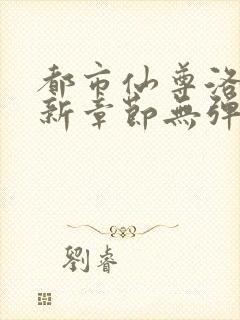 都市仙尊洛
新章節無彈
劉睿